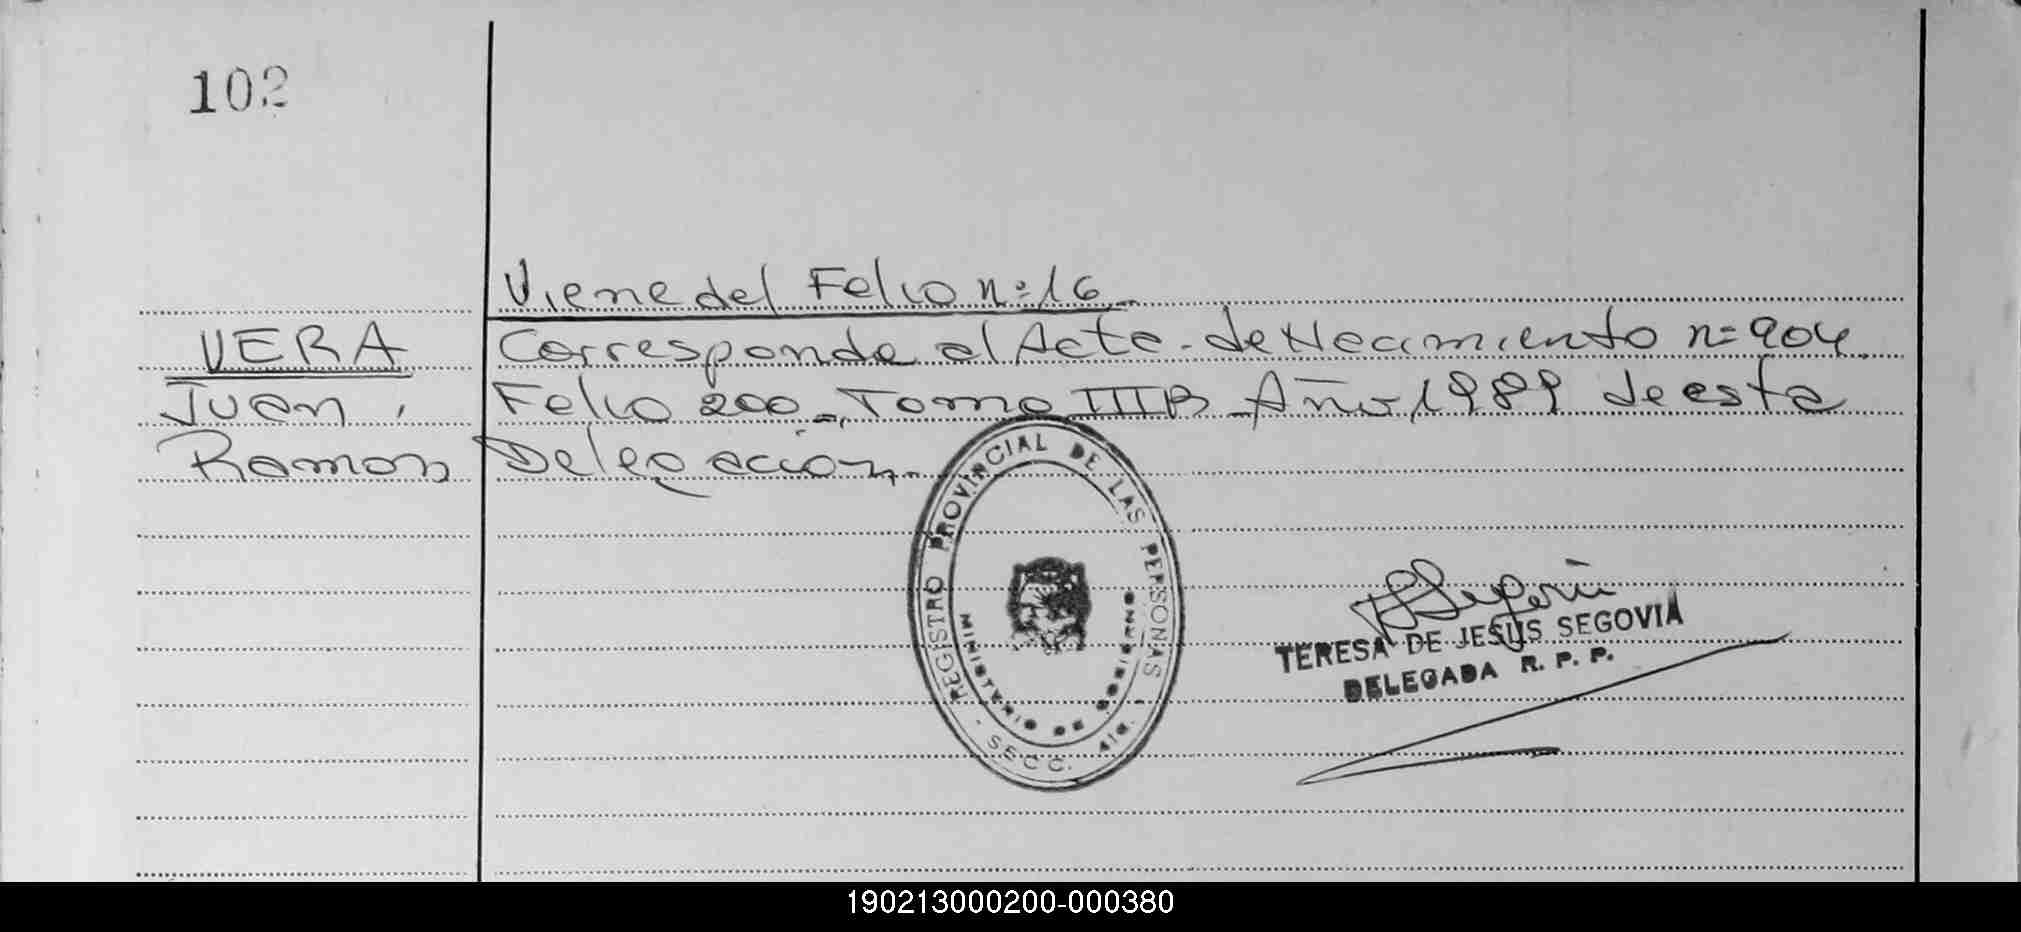 102
Viene del Folio n=16
VERA
Juan,
Ramon
Corresponde al Acta de Nacimiento n=904
Folio 200 Tomo IIIB Año 1989 de esta
Delegación
REGISTRO PROVINCIAL DE LAS PERSONAS
MINISTERIO DE GOBIERNO
SECC.
TERESA DE JESUS SEGOVIA
DELEGADA R. P. P.
190213000200-000380